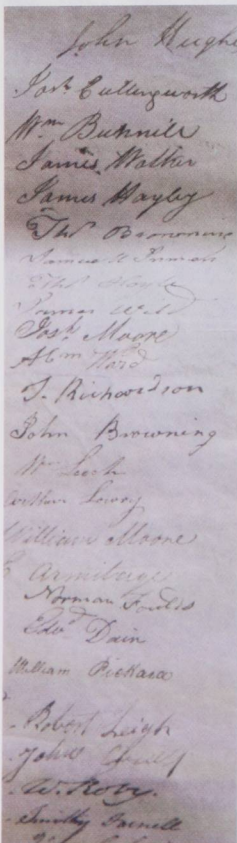 John Hughe
Josh Cullingworth
Wm Bunnill
James Walker
James Hayby
Thos Browning
Samuel
Thos
Wild
Josh Moore
Abm Ward
T. Richardson
John Browning
Wm Leech
Arthur Lowry
William Moore
Armitage
Norman Foulds
Edwd Dain
William Pickard
Robert Leigh
John
W. Roby.
Timothy Farnell